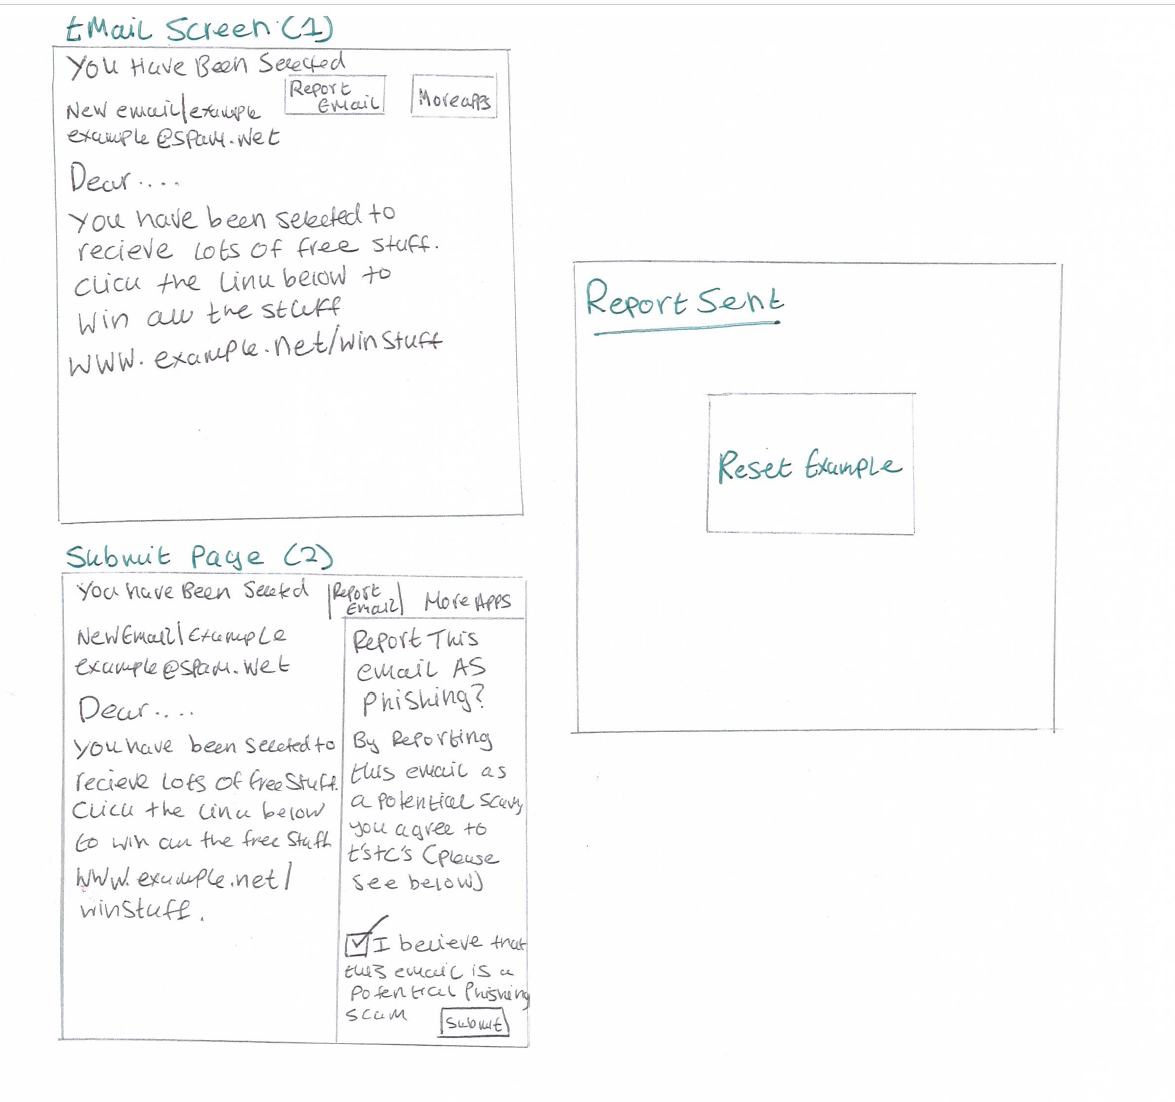 EMail Screen (1)
You Have Been Selected
Report
Email
More apps
New email/example
example@spam.net
Dear....
You have been selected to
recieve lots of free stuff.
click the link below to
Win all the stuff
WWW.example.net/winstuff
Submit Page (2)
You have Been Selected
Report
Email
More Apps
New Email/Example
example@spam.net
Dear....
you have been selected to
recieve lots of free stuff.
Click the link below
to win all the free stuff
www.example.net/
winstuff.
Report This
email AS
Phishing?
By Reporting
this email as
a potential scam
you agree to
t's+c's (please
see below)
I believe that
this email is a
Potential Phishing
scam
Submit
Report Sent
Reset Example